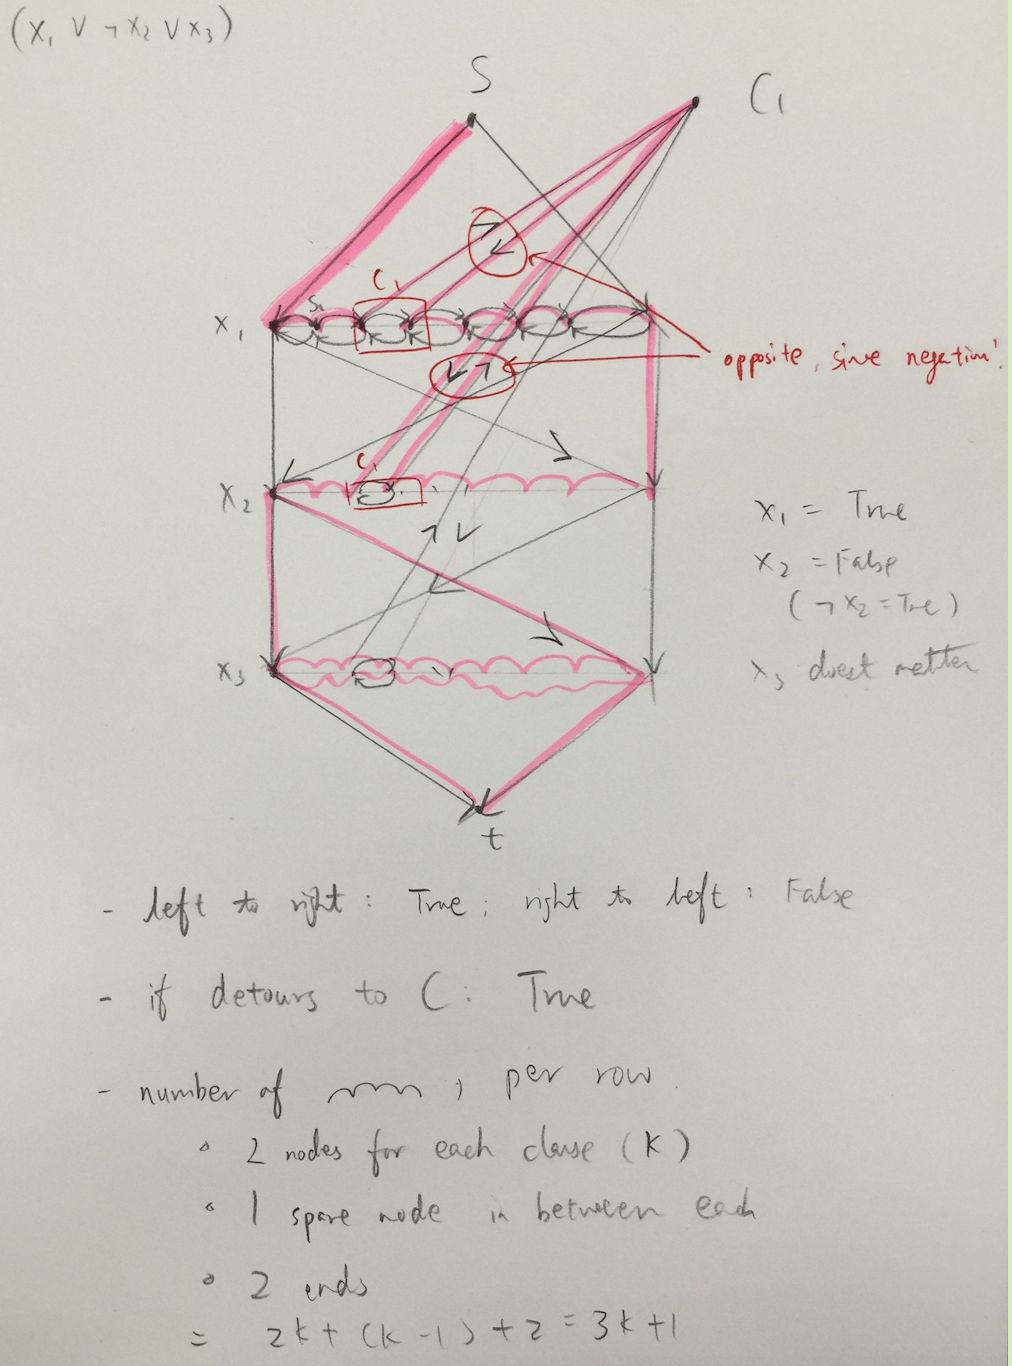 (x₁ ∨ ¬x₂ ∨ x₃)
S
C₁
C₁
S₁
x₁
opposite, since negation!
C₁
x₂
x₁ = True
x₂ = False
(¬x₂ = True)
x₃
x₃ doest matter
t
- left to right : True ; right to left : False
- if detours to C : True
- number of , per row.
° 2 nodes for each clause (K)
° 1 spare node in between each
° 2 ends
= 2k + (k-1) + 2 = 3k+1